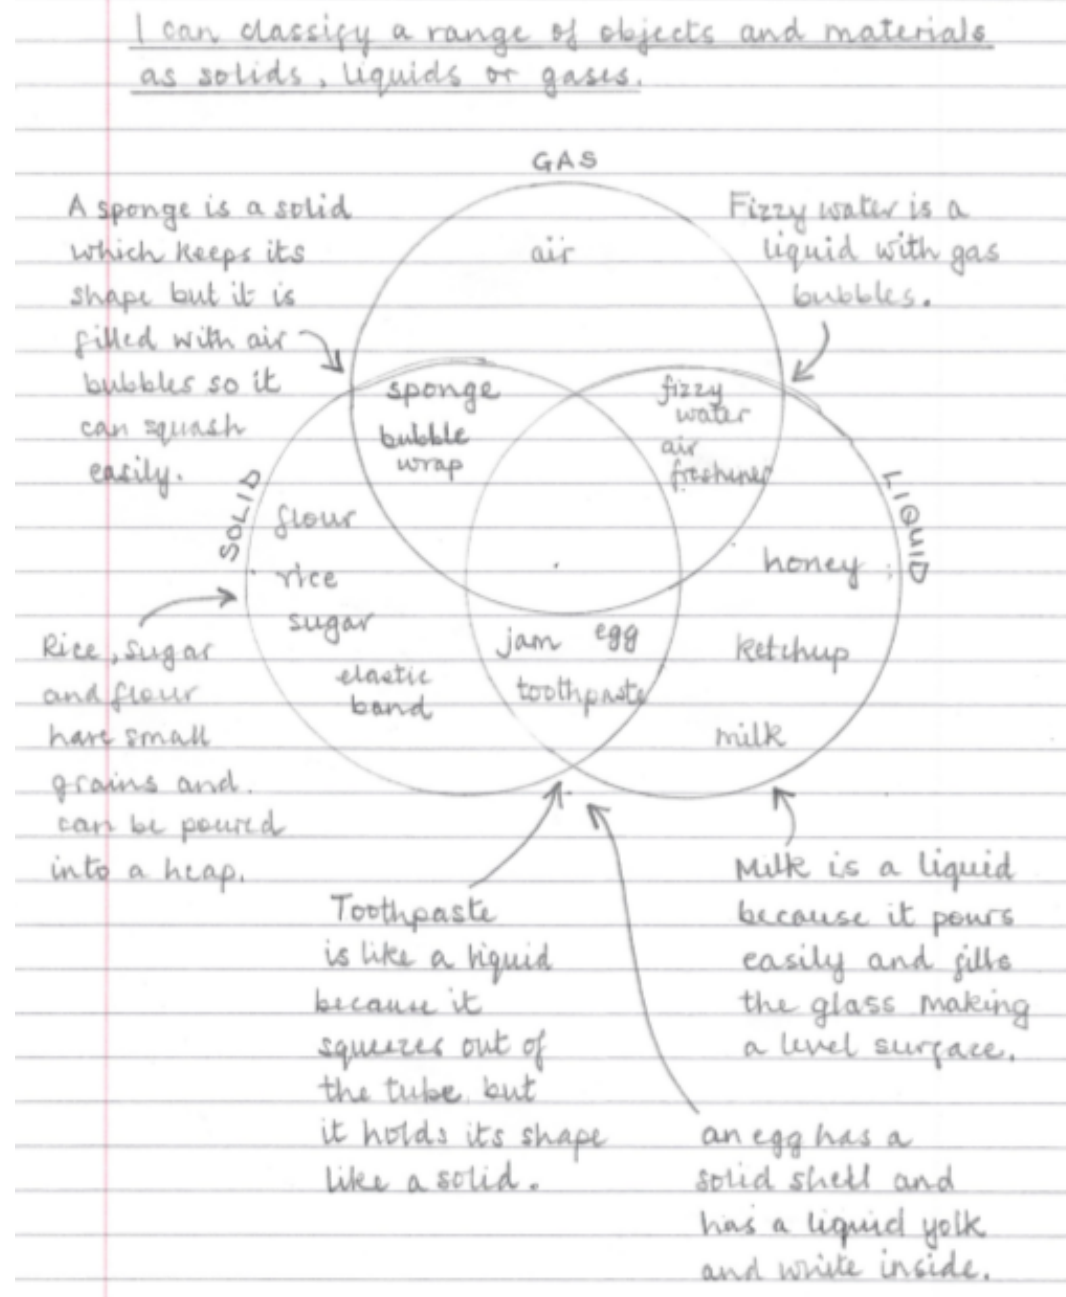 I can classify a range of objects and materials
as solids, liquids or gases.
GAS
A sponge is a solid
which keeps its
shape but it is
filled with air
bubbles so it
can squash
easily.
Fizzy water is a
liquid with gas
bubbles.
air
sponge
bubble
wrap
fizzy
water
air
freshner
SOLID
LIQUID
flour
rice
sugar
elastic
band
jam egg
toothpaste
honey
ketchup
milk
Rice, sugar
and flour
have small
grains and.
can be poured
into a heap.
Toothpaste
is like a liquid
because it
squeezes out of
the tube but
it holds its shape
like a solid.
Milk is a liquid
because it pours
easily and fills
the glass making
a level surface.
an egg has a
solid shell and
has a liquid yolk
and white inside.